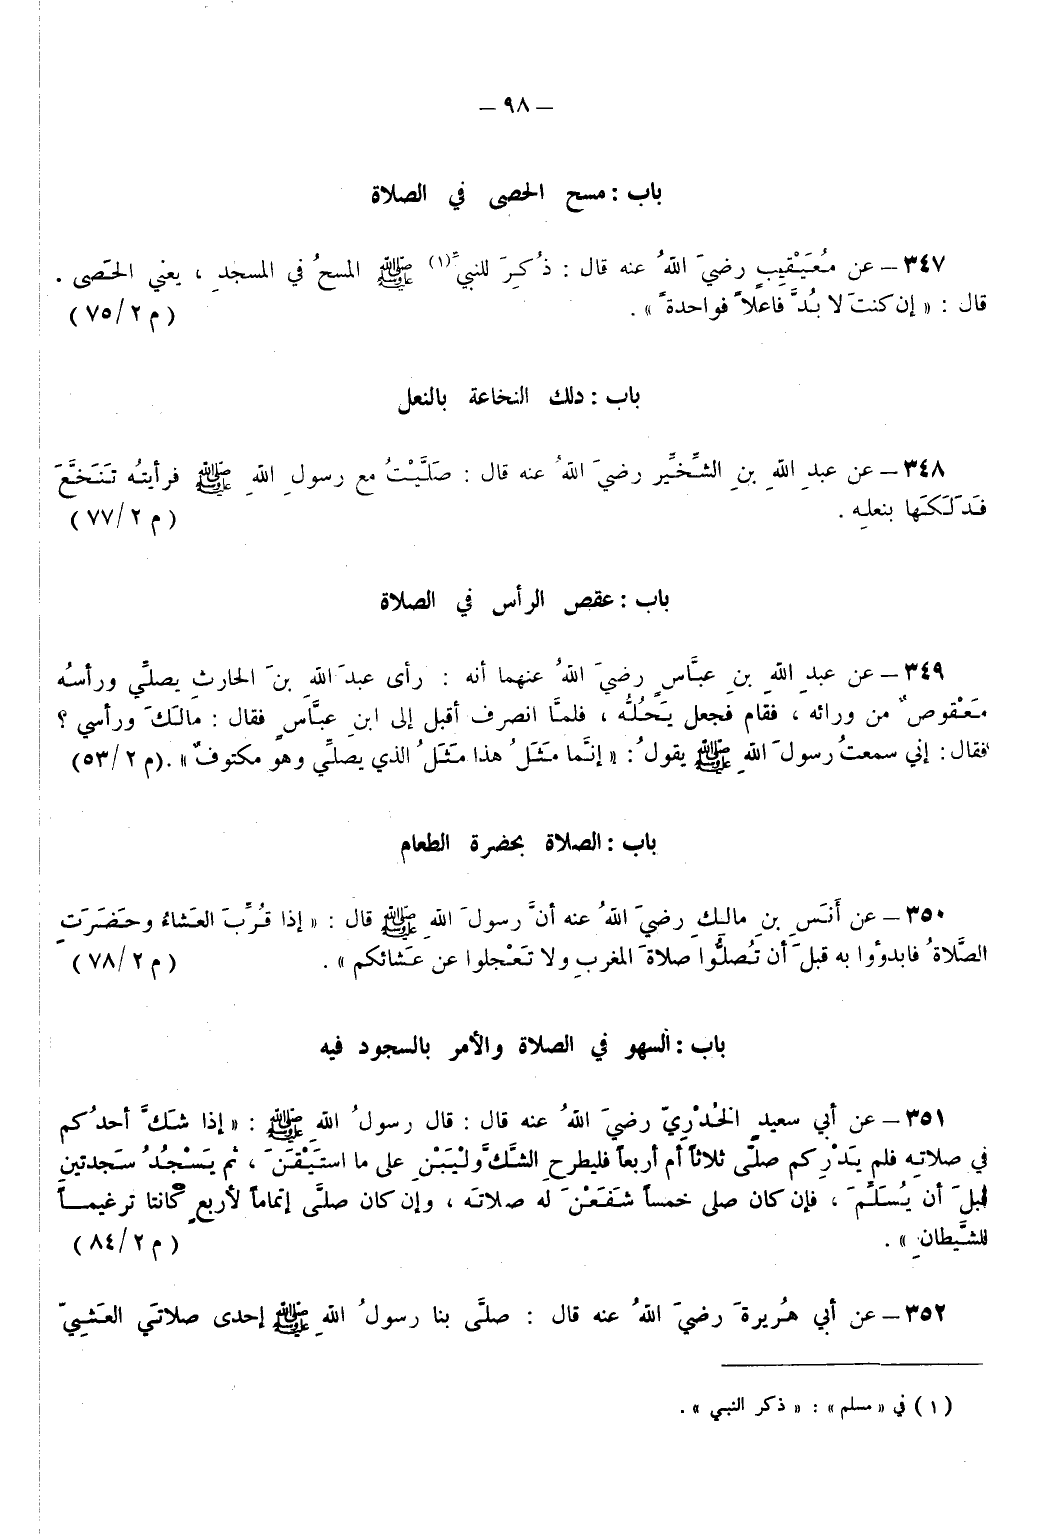 – ٩٨ –
باب : مسح الحصى في الصلاة
٣٤٧ – عن مُعَيْقِيبٍ رضيَ اللهُ عنه قال : ذُكِرَ للنبيِّ(١) ﷺ المسحُ في المسجدِ ، يعني الحَصى .
قال : « إن كنتَ لا بُدَّ فاعلاً فواحدةً » . ( م ٢/ ٧٥ )
باب : دلك النخاعة بالنعل
٣٤٨ – عن عبدِ اللهِ بنِ الشِّخِّير رضيَ اللهُ عنه قال : صَلَّيْتُ مع رسولِ اللهِ ﷺ فرأيتُه تَنَخَّعَ
فَدَلَكَها بنعلِه . ( م ٢/ ٧٧ )
باب : عقص الرأس في الصلاة
٣٤٩ – عن عبدِ اللهِ بنِ عبَّاسٍ رضيَ اللهُ عنهما أنه : رأى عبدَ اللهِ بنَ الحارثِ يصلِّي ورأسُه
مَعْقوصٌ من ورائه ، فقام فجعل يَحُلُّه ، فلمَّا انصرف أقبل إلى ابنِ عبَّاسٍ فقال : مالَكَ ورأسي ؟
فقال : إني سمعتُ رسولَ اللهِ ﷺ يقولُ : « إنَّما مَثَلُ هذا مَثَلُ الذي يصلِّي وهو مكتوفٌ » . (م ٢/ ٥٣)
باب : الصلاة بحضرة الطعام
٣٥٠ – عن أَنَسِ بنِ مالِكٍ رضيَ اللهُ عنه أنَّ رسولَ اللهِ ﷺ قال : « إذا قُرِّبَ العَشاءُ وحَضَرَتِ
الصَّلاةُ فابدؤوا به قبلَ أن تُصلُّوا صلاةَ المغربِ ولا تَعْجلوا عن عَشائكم » . ( م ٢/ ٧٨ )
باب : السهو في الصلاة والأمر بالسجود فيه
٣٥١ – عن أبي سعيدٍ الخُدْرِيّ رضيَ اللهُ عنه قال : قال رسولُ اللهِ ﷺ : « إذا شَكَّ أحدُكم
في صلاتِه فلم يَدْرِ كم صلَّى ثلاثاً أم أربعاً فليطرحِ الشَّكَّ ولْيَبْنِ على ما استَيْقَنَ ، ثم يَسْجُدُ سَجدتينِ
قبلَ أن يُسَلِّمَ ، فإن كان صلى خمساً شَفَعْنَ له صلاتَه ، وإن كان صلَّى إتماماً لأربعٍ كانتا ترغيمـــاً
للشَّيطانِ » . ( م ٢/ ٨٤ )
٣٥٢ – عن أبي هُريرةَ رضيَ اللهُ عنه قال : صلَّى بنا رسولُ اللهِ ﷺ إحدى صلاتَي العَشِيّ
( ١ ) في « مسلم » : « ذكر النبي » .